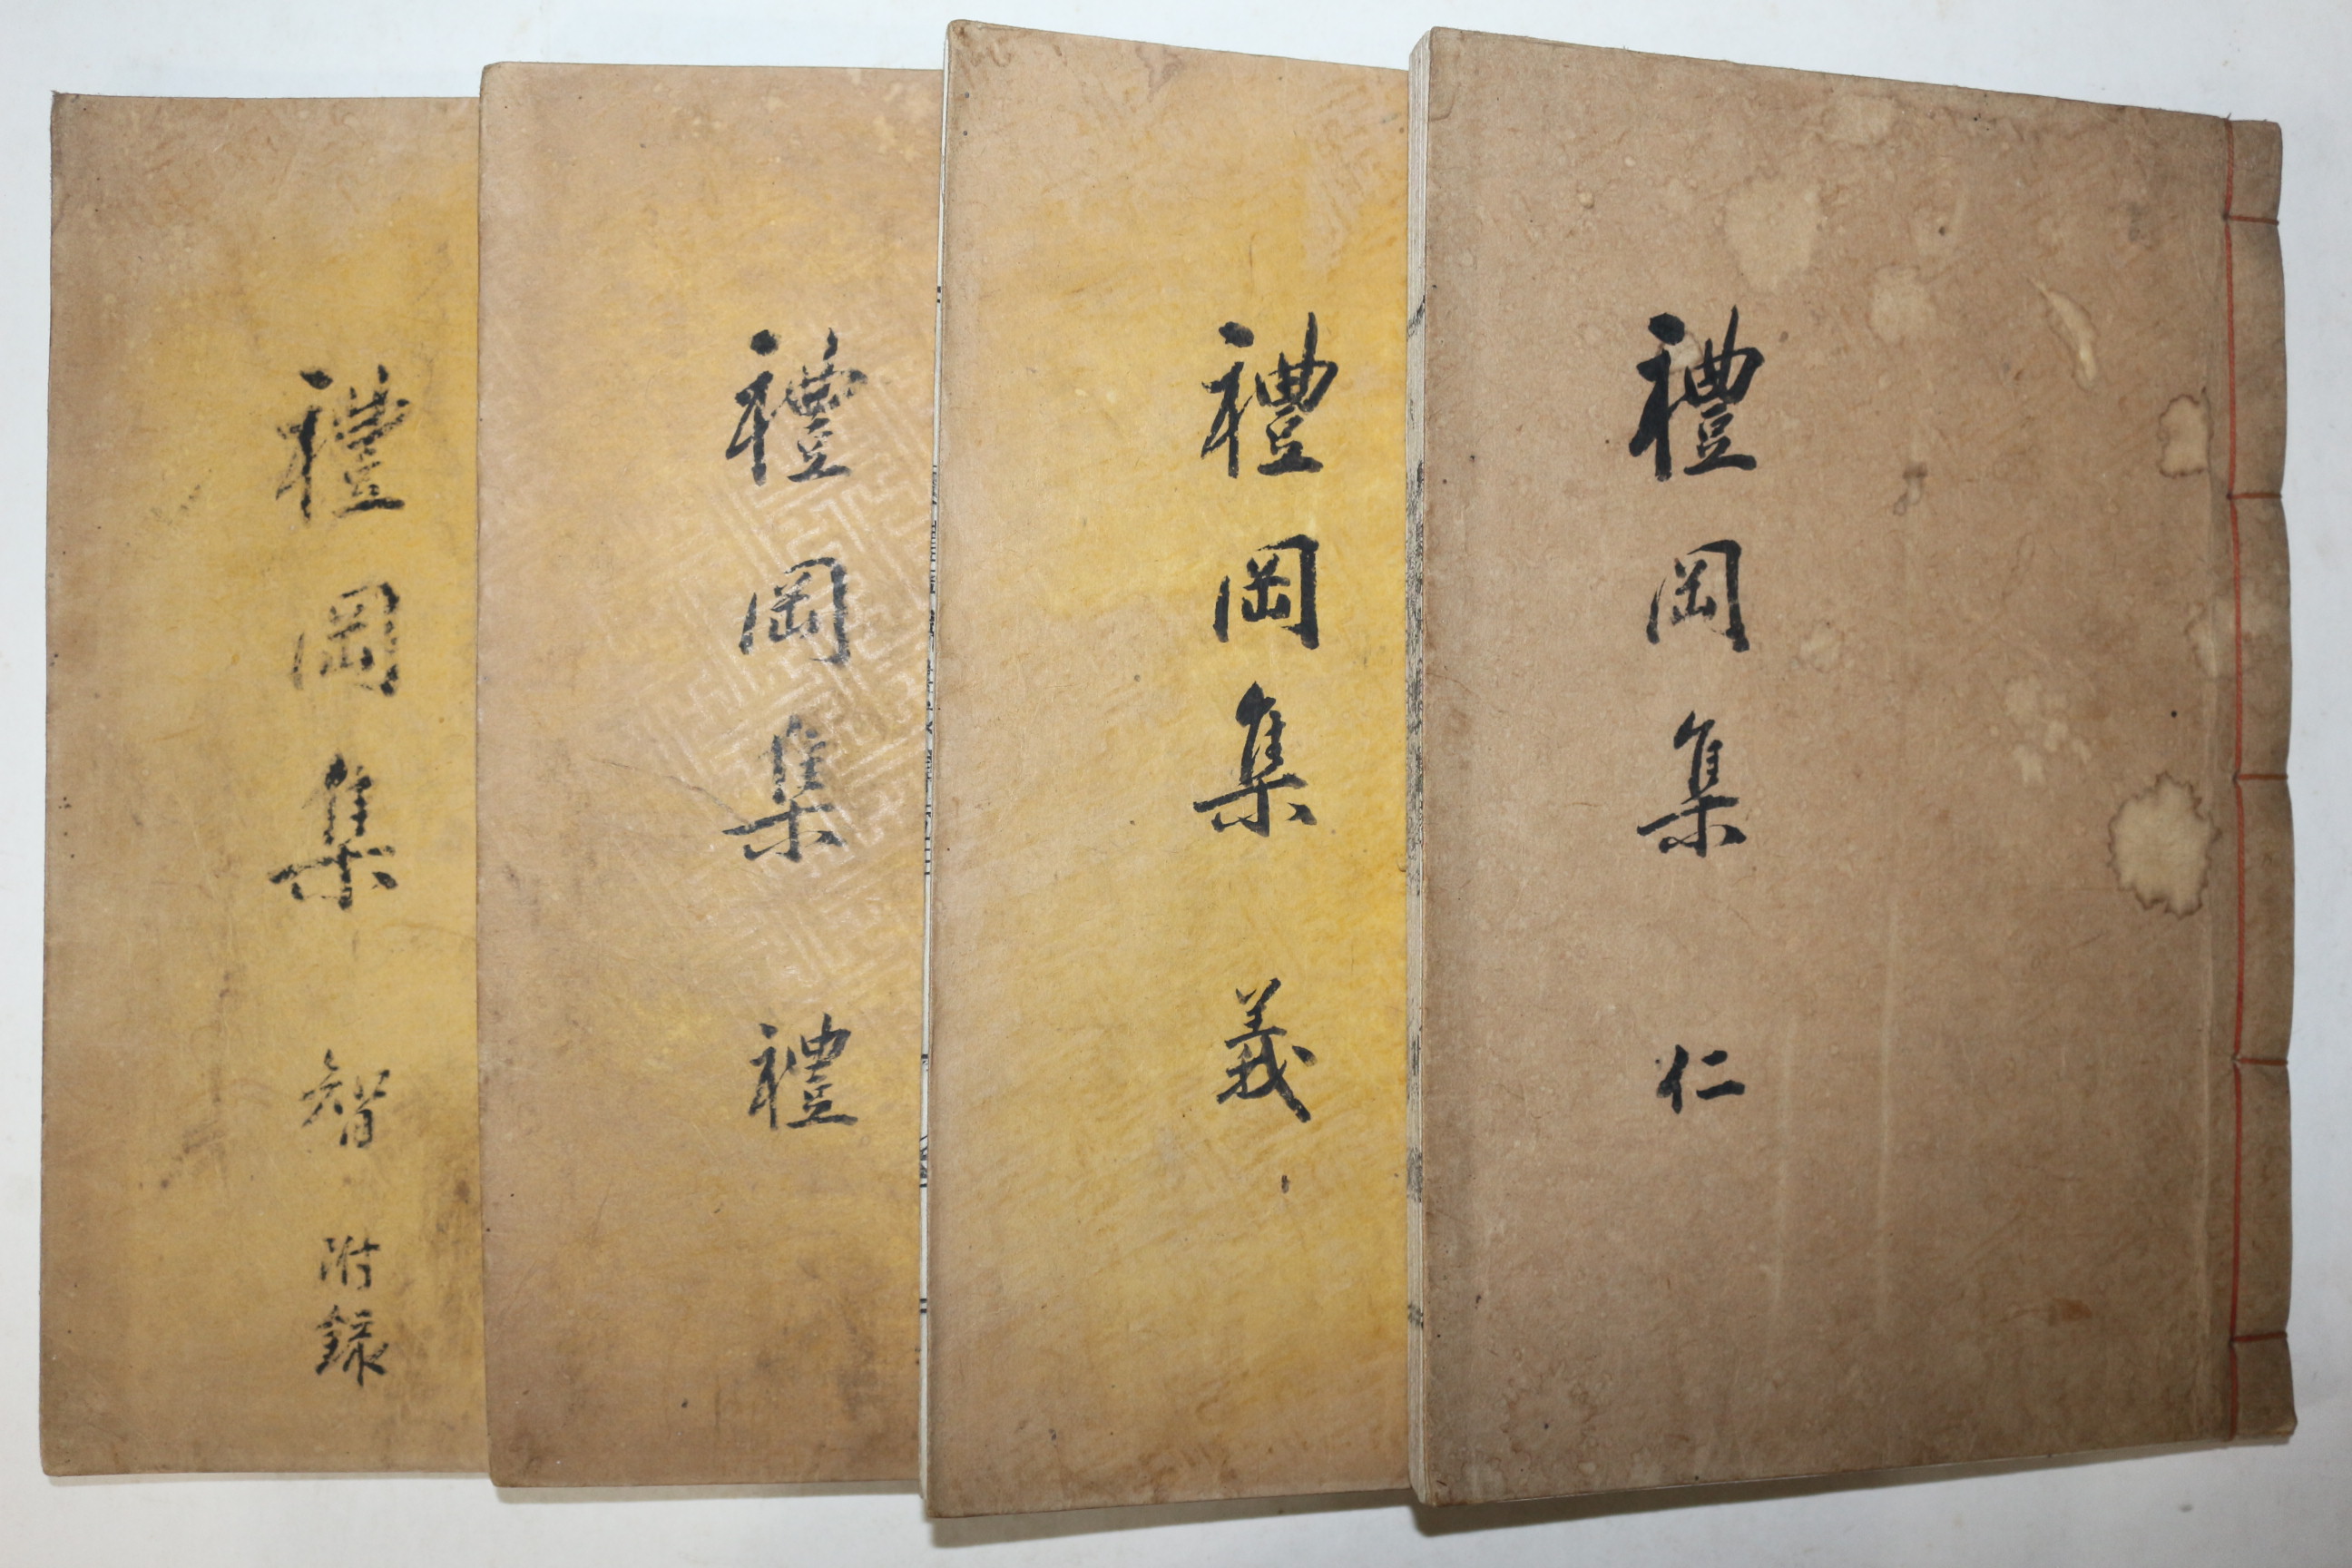 禮岡集 仁
禮岡集 義
禮岡集 禮
禮岡集 智 附錄